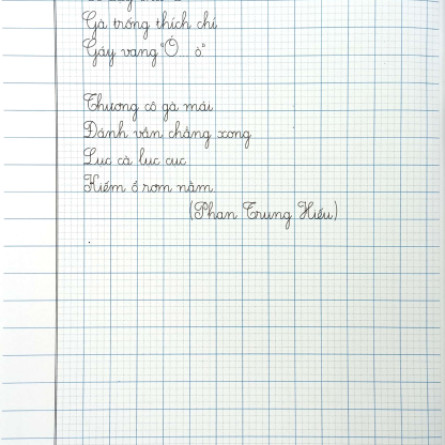 Gà trống thích chí
Gáy vang "Ó ò"
Thương cô gà mái
Đánh vần chẳng xong
Lục cà lục cục
Kiếm ổ rơm nằm.
(Phan Trung Hiếu)